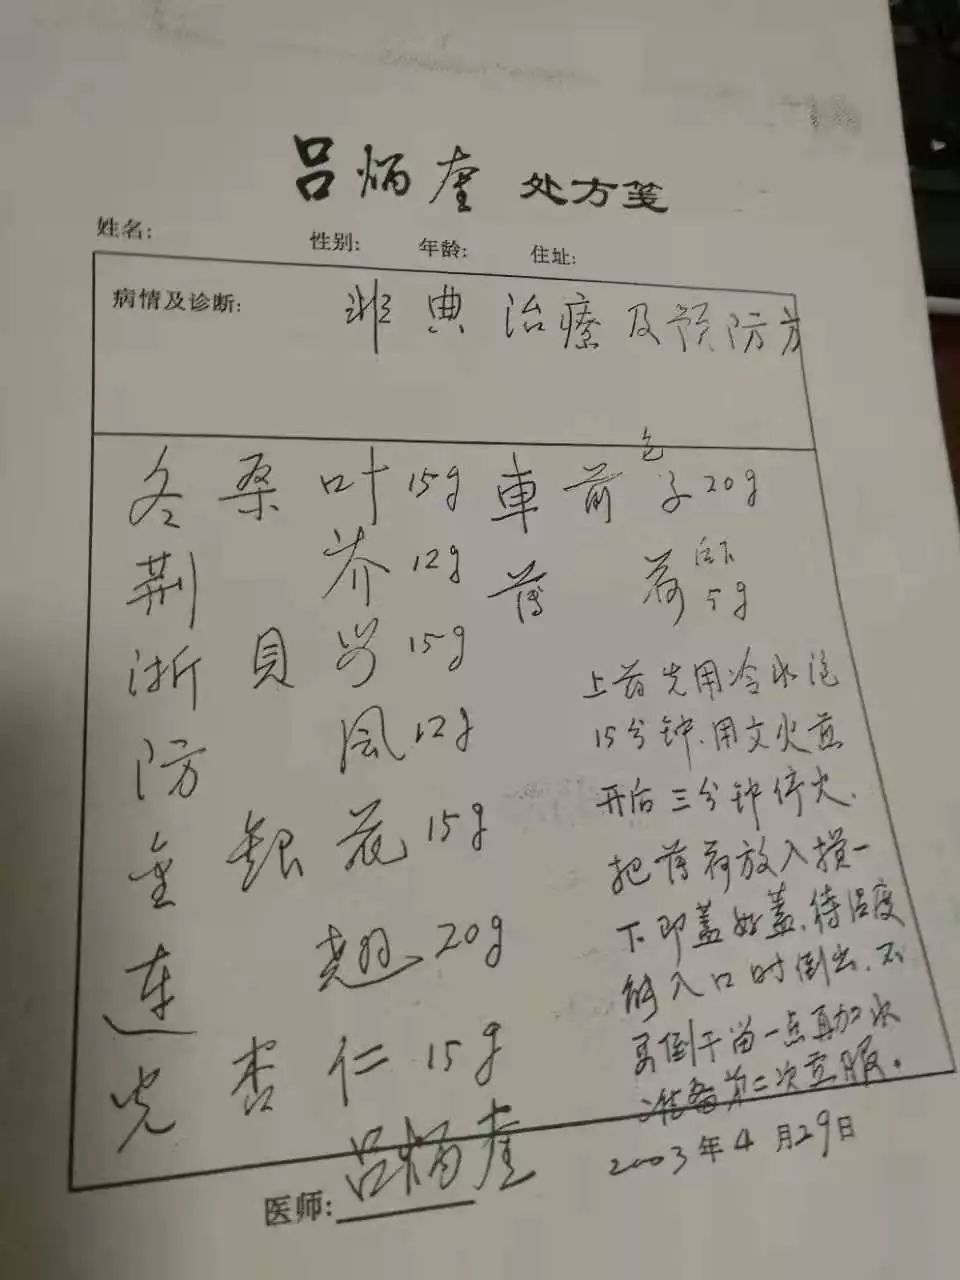 吕炳奎 处方笺
姓名: 性别: 年龄: 住址:
病情及诊断: 非典治療及预防方
冬桑叶15g
荆芥12g
浙貝母15g
防風12g
金銀花15g
連翘20g
光杏仁15g
車前子20g
包
薄荷5g
后下
上药先用冷水泡
15分钟、用文火煎
开后三分钟停火.
把薄荷放入损一
下即盖好盖、待温度
能入口时倒出、不
要倒干留一点再加水
准备第二次煎服。
医师: 吕炳奎
2003年4月29日